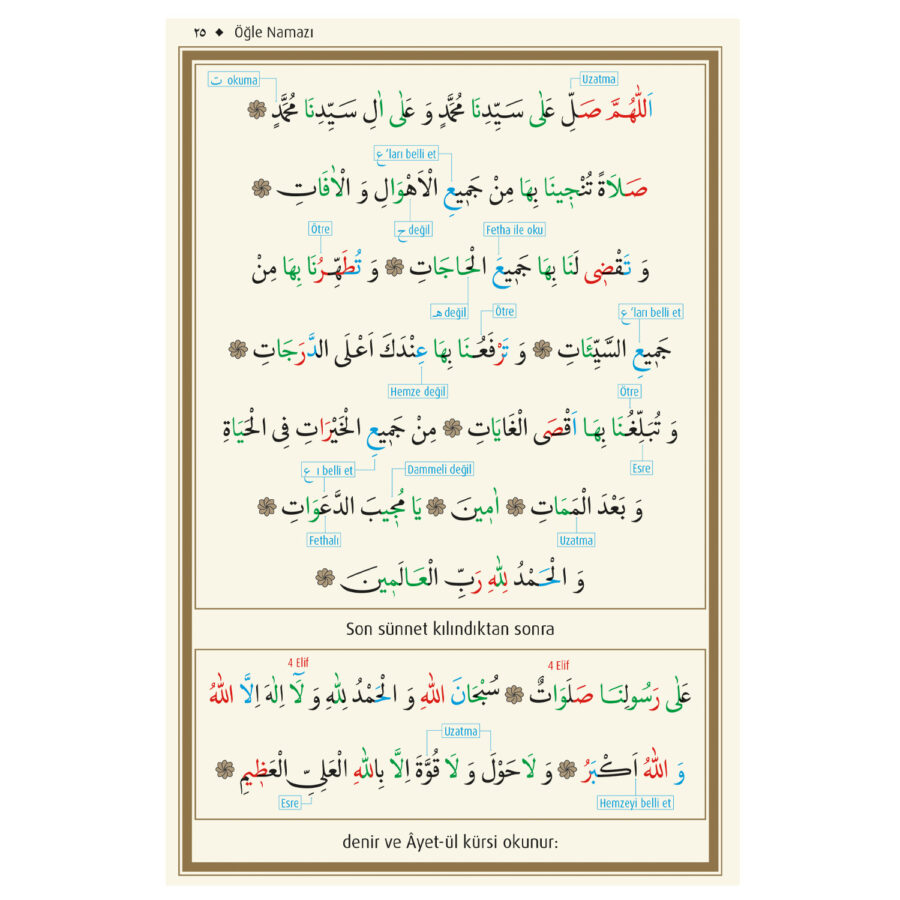 ٢٥ ◆ Öğle Namazı
ت okuma
Uzatma
اَللّٰهُمَّ صَلِّ عَلٰى سَيِّدِنَا مُحَمَّدٍ وَ عَلٰى اٰلِ سَيِّدِنَا مُحَمَّدٍ ۞
ع ‘ları belli et
صَلَاةً تُنْجِينَا بِهَا مِنْ جَمِيعِ الْاَهْوَالِ وَ الْاٰفَاتِ ۞
Ötre
ح değil
Fetha ile oku
وَ تَقْضِى لَنَا بِهَا جَمِيعَ الْحَاجَاتِ ۞ وَ تُطَهِّرُنَا بِهَا مِنْ
هـ değil
Ötre
ع ‘ları belli et
جَمِيعِ السَّيِّئَاتِ ۞ وَ تَرْفَعُنَا بِهَا عِنْدَكَ اَعْلَى الدَّرَجَاتِ ۞
Hemze değil
Ötre
وَ تُبَلِّغُنَا بِهَا اَقْصَى الْغَايَاتِ ۞ مِنْ جَمِيعِ الْخَيْرَاتِ فِى الْحَيَاةِ
ع ı belli et
Dammeli değil
Esre
وَ بَعْدَ الْمَمَاتِ ۞ اٰمِينَ ۞ يَا مُجِيبَ الدَّعَوَاتِ ۞
Fethalı
Uzatma
وَ الْحَمْدُ لِلّٰهِ رَبِّ الْعَالَمِينَ ۞
Son sünnet kılındıktan sonra
4 Elif
4 Elif
عَلٰى رَسُولِنَا صَلَوَاتٌ ۞ سُبْحَانَ اللّٰهِ وَ الْحَمْدُ لِلّٰهِ وَ لَٓا اِلٰهَ اِلَّا اللّٰهُ
Uzatma
وَ اللّٰهُ اَكْبَرُ ۞ وَ لَا حَوْلَ وَ لَا قُوَّةَ اِلَّا بِاللّٰهِ الْعَلِىِّ الْعَظِيمِ ۞
Esre
Hemzeyi belli et
denir ve Âyet-ül kürsi okunur: